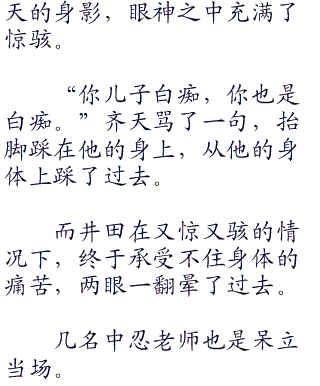 天的身影，眼神之中充满了
惊骇。
“你儿子白痴，你也是
白痴。”齐天骂了一句，抬
脚踩在他的身上，从他的身
体上踩了过去。
而井田在又惊又骇的情
况下，终于承受不住身体的
痛苦，两眼一翻晕了过去。
几名中忍老师也是呆立
当场。